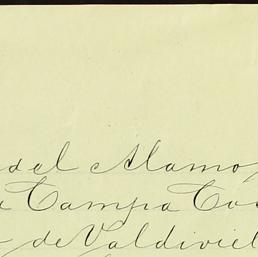 del Alamo
Campa Cos
de Valdiviel